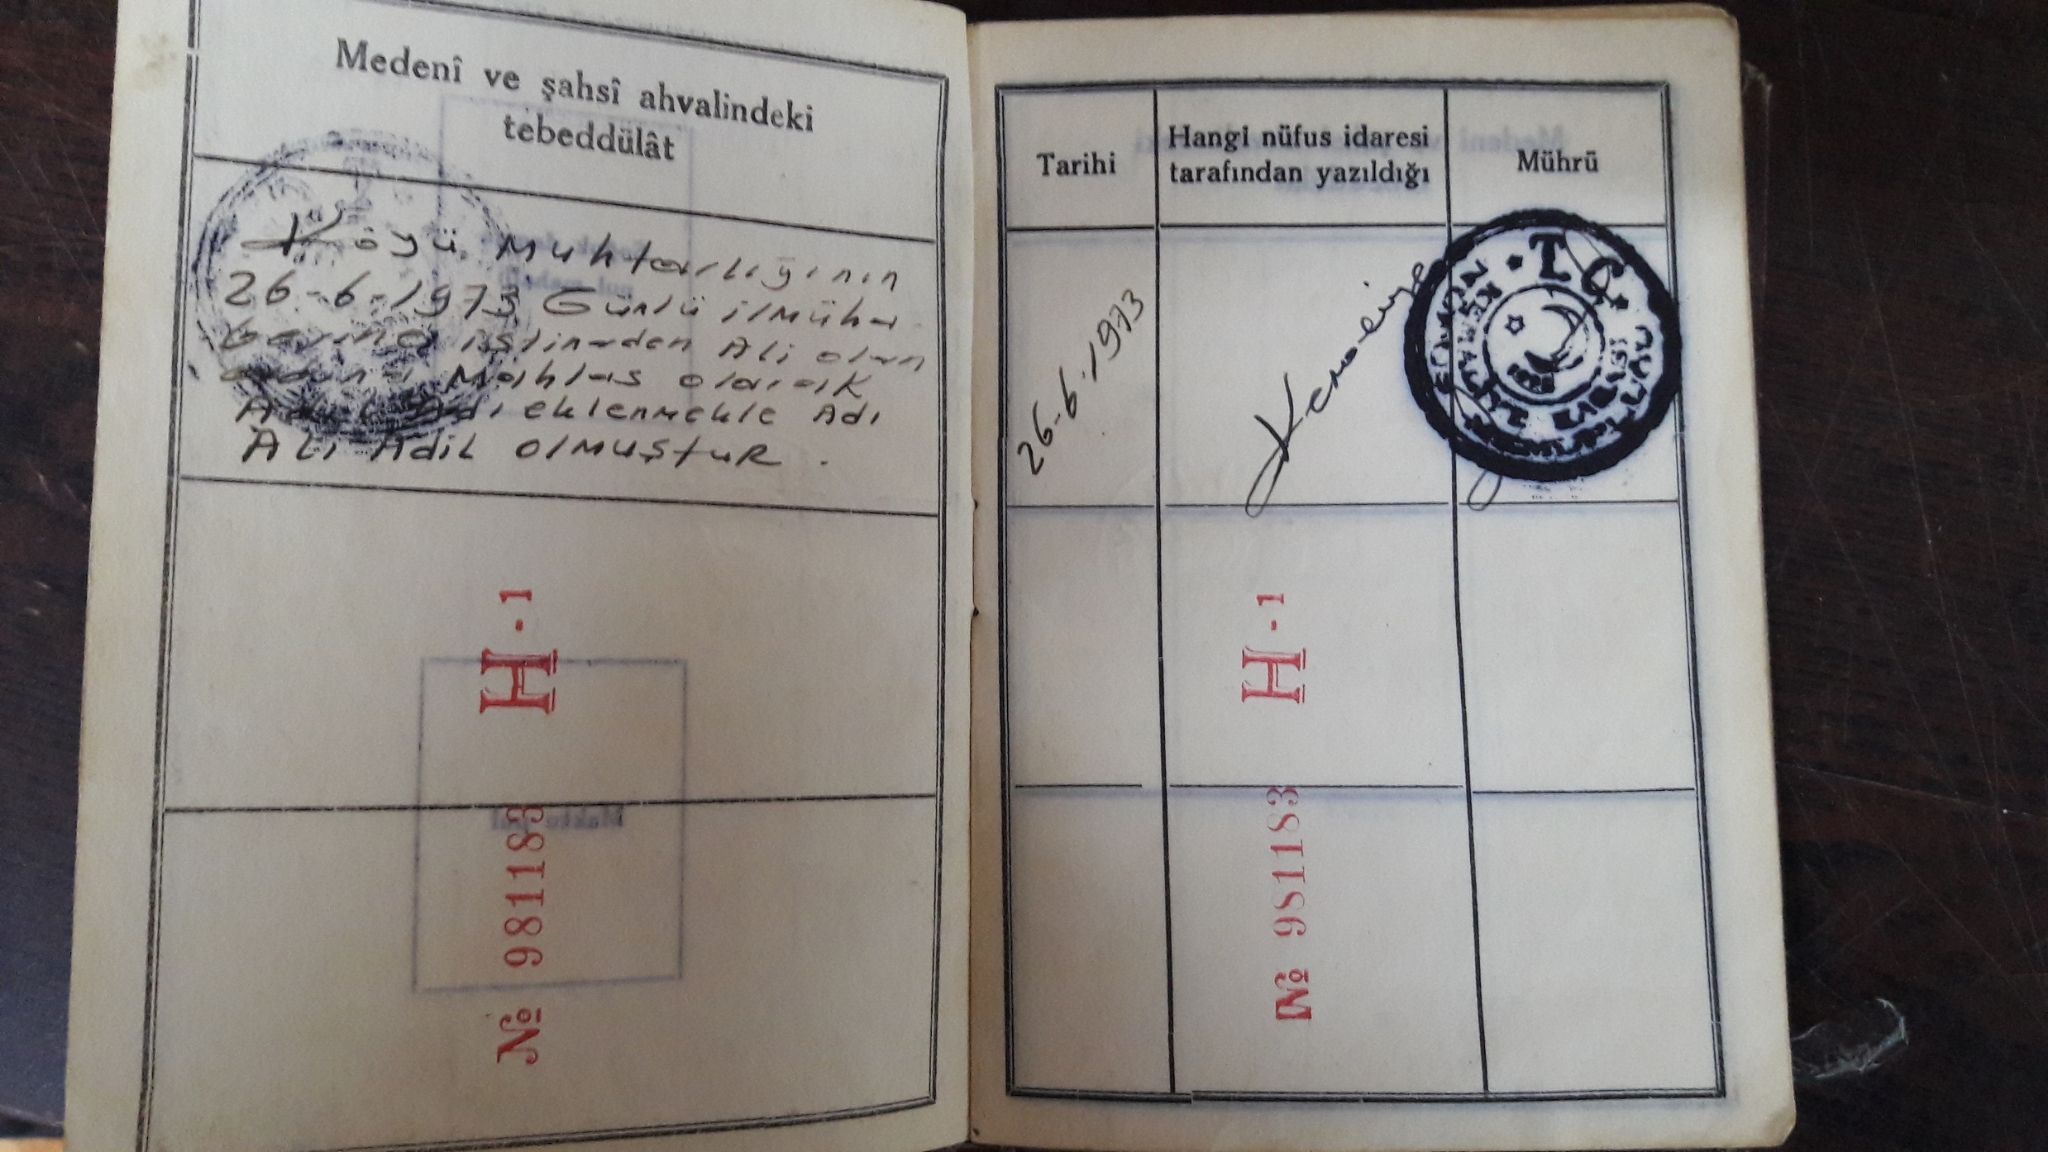 Medenî ve şahsî ahvalindeki
tebeddülât
Köyü Muhtarlığının
26-6-1973 Günlü ilmüha
berine istinaden Ali olan
adına Mahlas olarak
Adil Adı eklenmekle Adı
Ali Adil olmuştur.
H-1
№ 981183
Tarihi
Hangi nüfus idaresi
tarafından yazıldığı
Mührü
26-6-1973
Kemaliye
T.C.
H-1
№ 981183